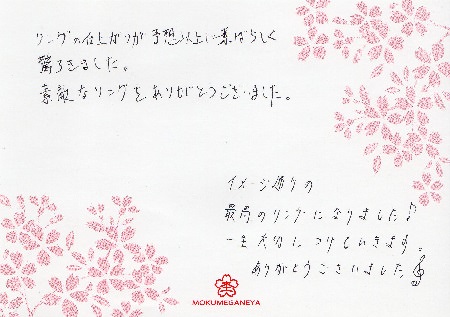 リングの仕上がりが予想以上に素ばらしく
驚ろきました。
素敵なリングをありがとうございました。
イメージ通りの
最高のリングになりました♪
一生大切につけていきます。
ありがとうございました
MOKUMEGANEYA